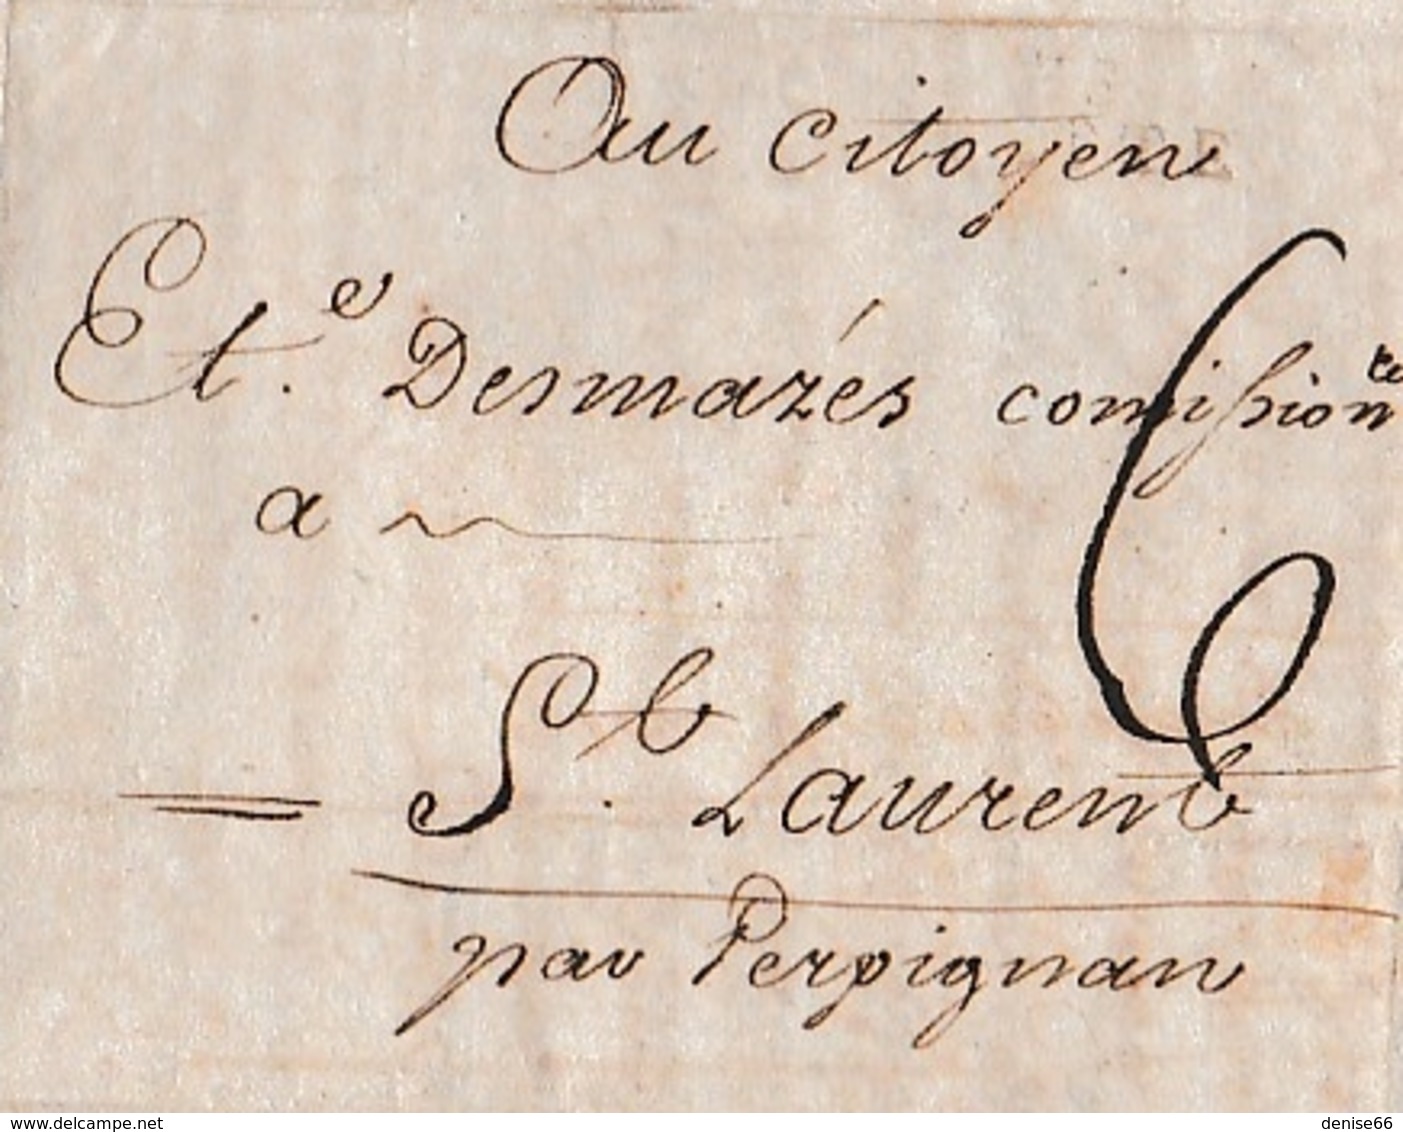 Au Citoyen
Et.e Desmazés comission.re
a
6
St. Laurent
par Perpignan
www.delcampe.net
denise66